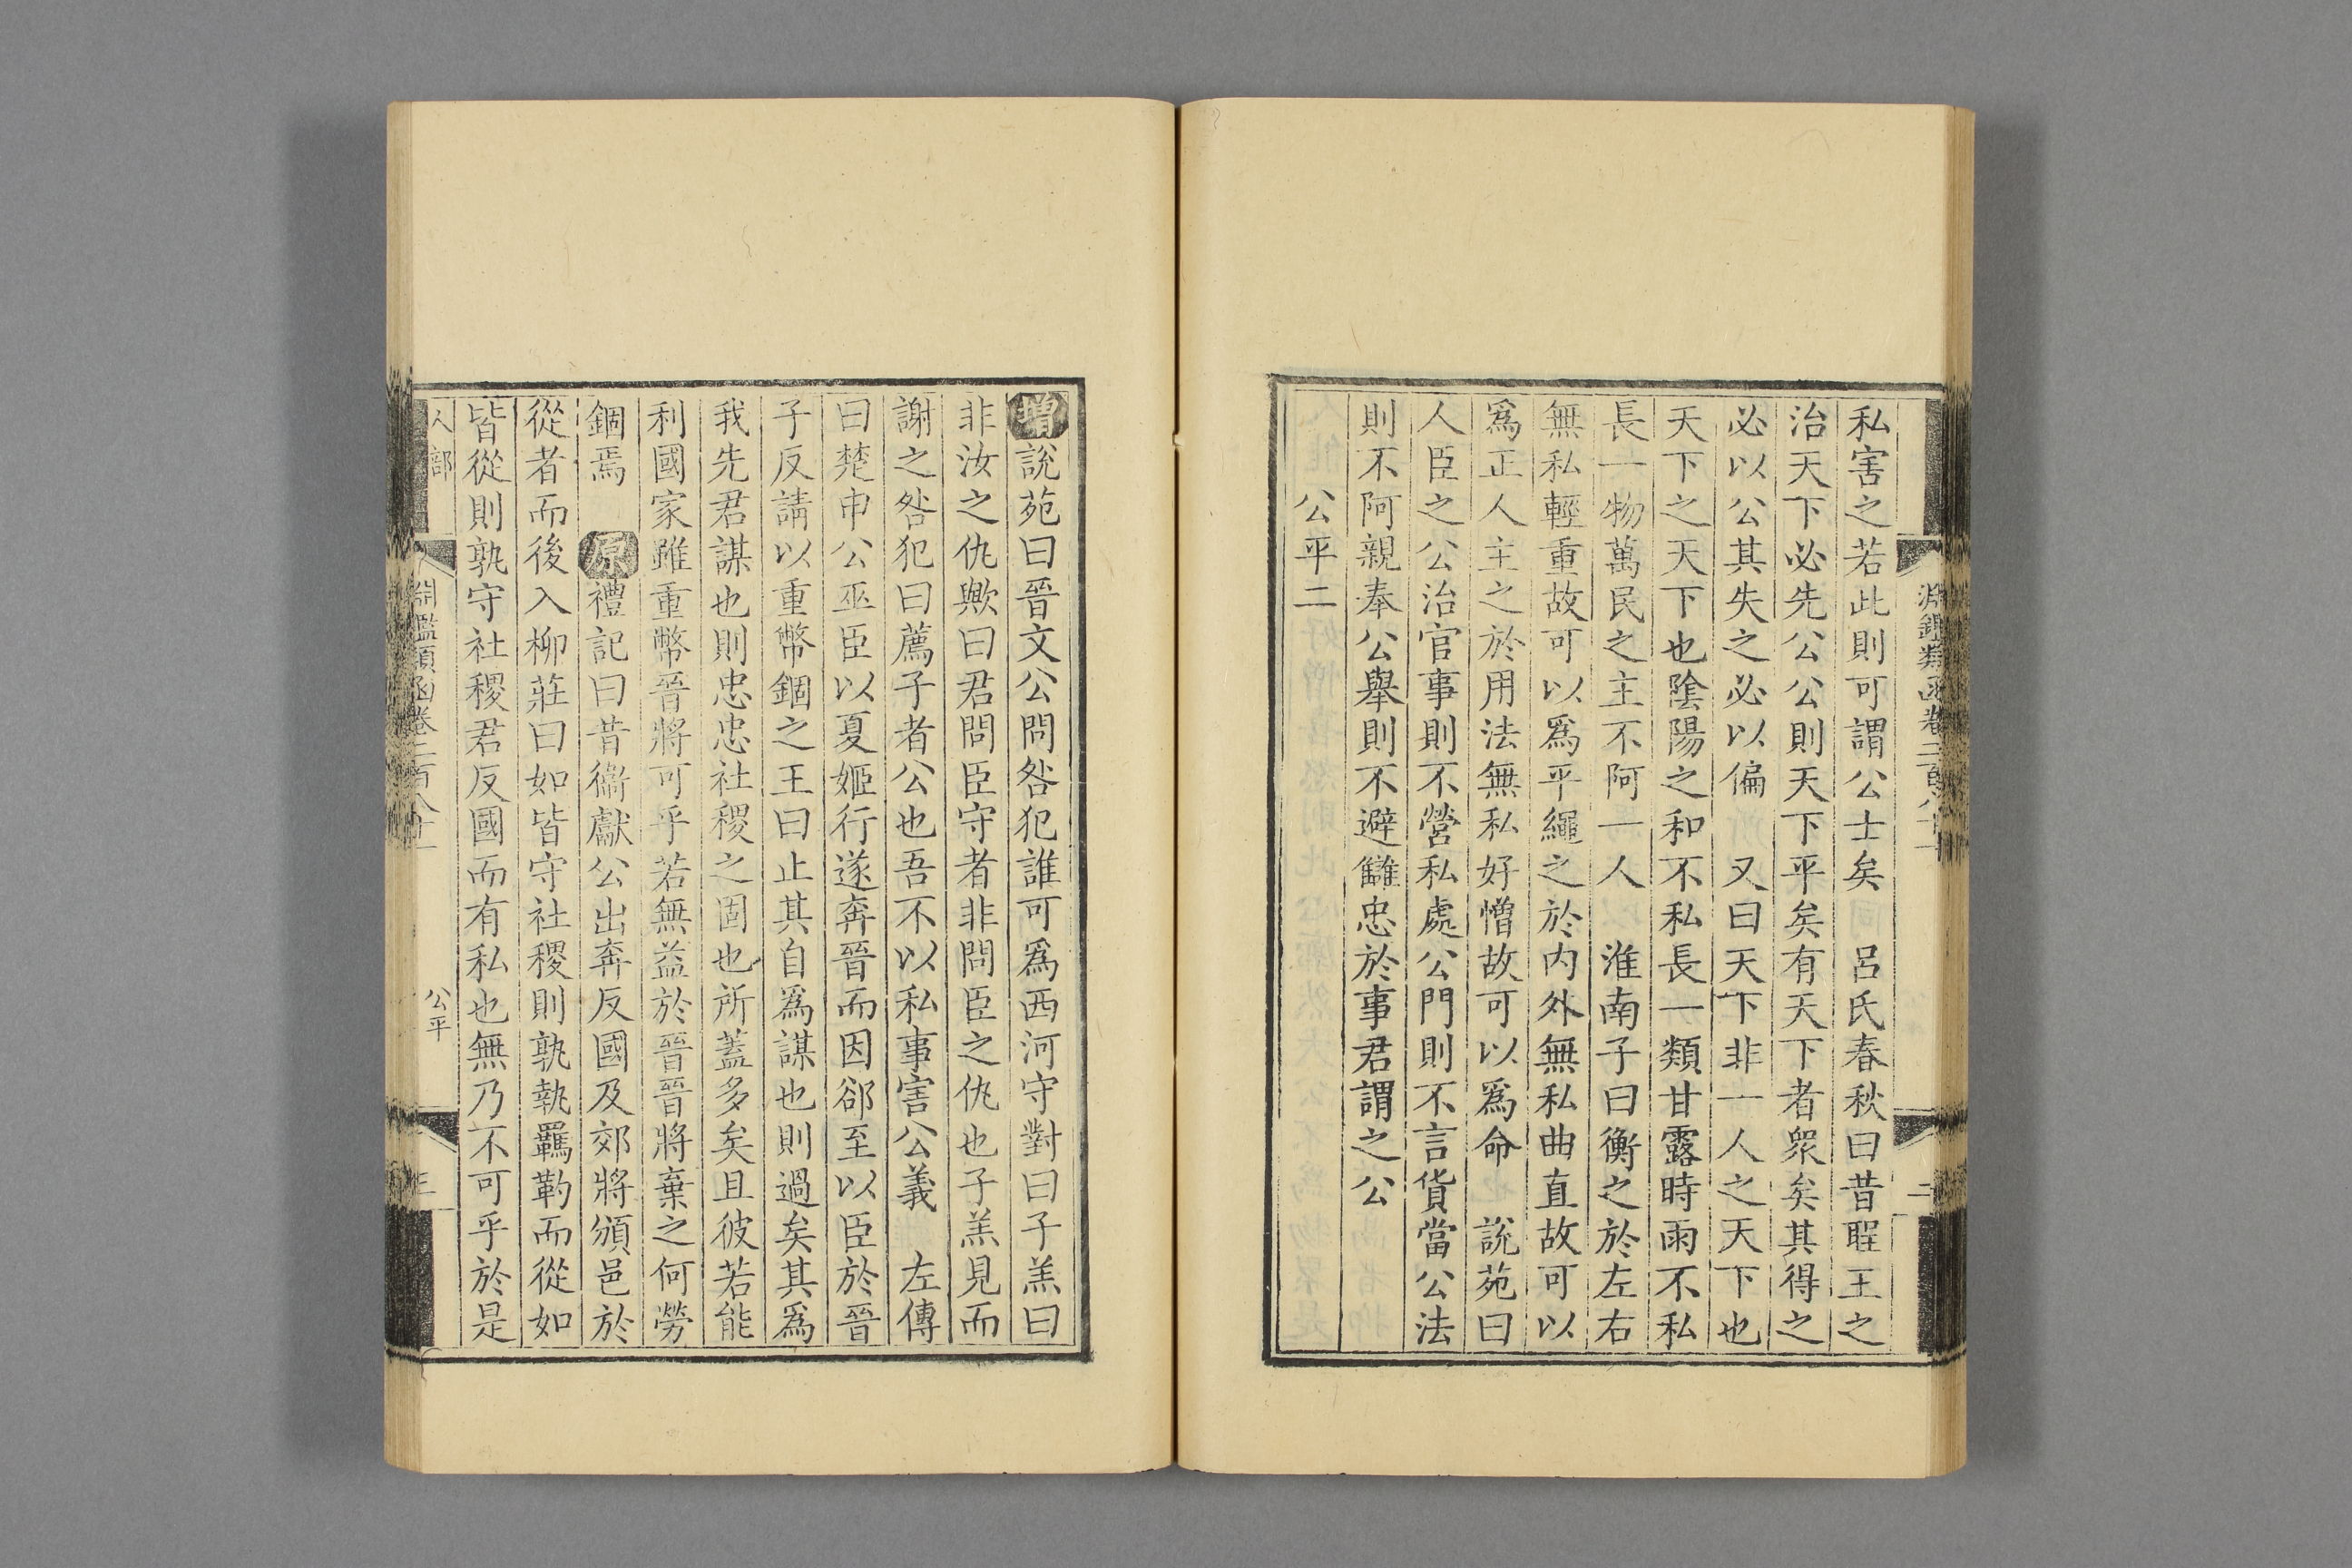 淵鑑類函卷二百八十一
二
私害之若此則可謂公士矣 呂氏春秋曰昔聖王之
治天下必先公公則天下平矣有天下者衆矣其得之
必以公其失之必以偏 又曰天下非一人之天下也
天下之天下也陰陽之和不私長一類甘露時雨不私
長一物萬民之主不阿一人 淮南子曰衡之於左右
無私輕重故可以爲平繩之於内外無私曲直故可以
爲正人主之於用法無私好憎故可以爲命 說苑曰
人臣之公治官事則不營私處公門則不言貨當公法
則不阿親奉公舉則不避讎忠於事君謂之公
公平二
增說苑曰晉文公問咎犯誰可爲西河守對曰子羔曰
非汝之仇歟曰君問臣守者非問臣之仇也子羔見而
謝之咎犯曰薦子者公也吾不以私事害公義 左傳
曰楚申公巫臣以夏姬行遂奔晉而因郤至以臣於晉
子反請以重幣錮之王曰止其自爲謀也則過矣其爲
我先君謀也則忠忠社稷之固也所蓋多矣且彼若能
利國家雖重幣晉將可乎若無益於晉晉將棄之何勞
錮焉 原禮記曰昔衞獻公出奔反國及郊將頒邑於
從者而後入柳莊曰如皆守社稷則孰執羈靮而從如
皆從則孰守社稷君反國而有私也無乃不可乎於是
人部
淵鑑類函卷二百八十一
公平
三